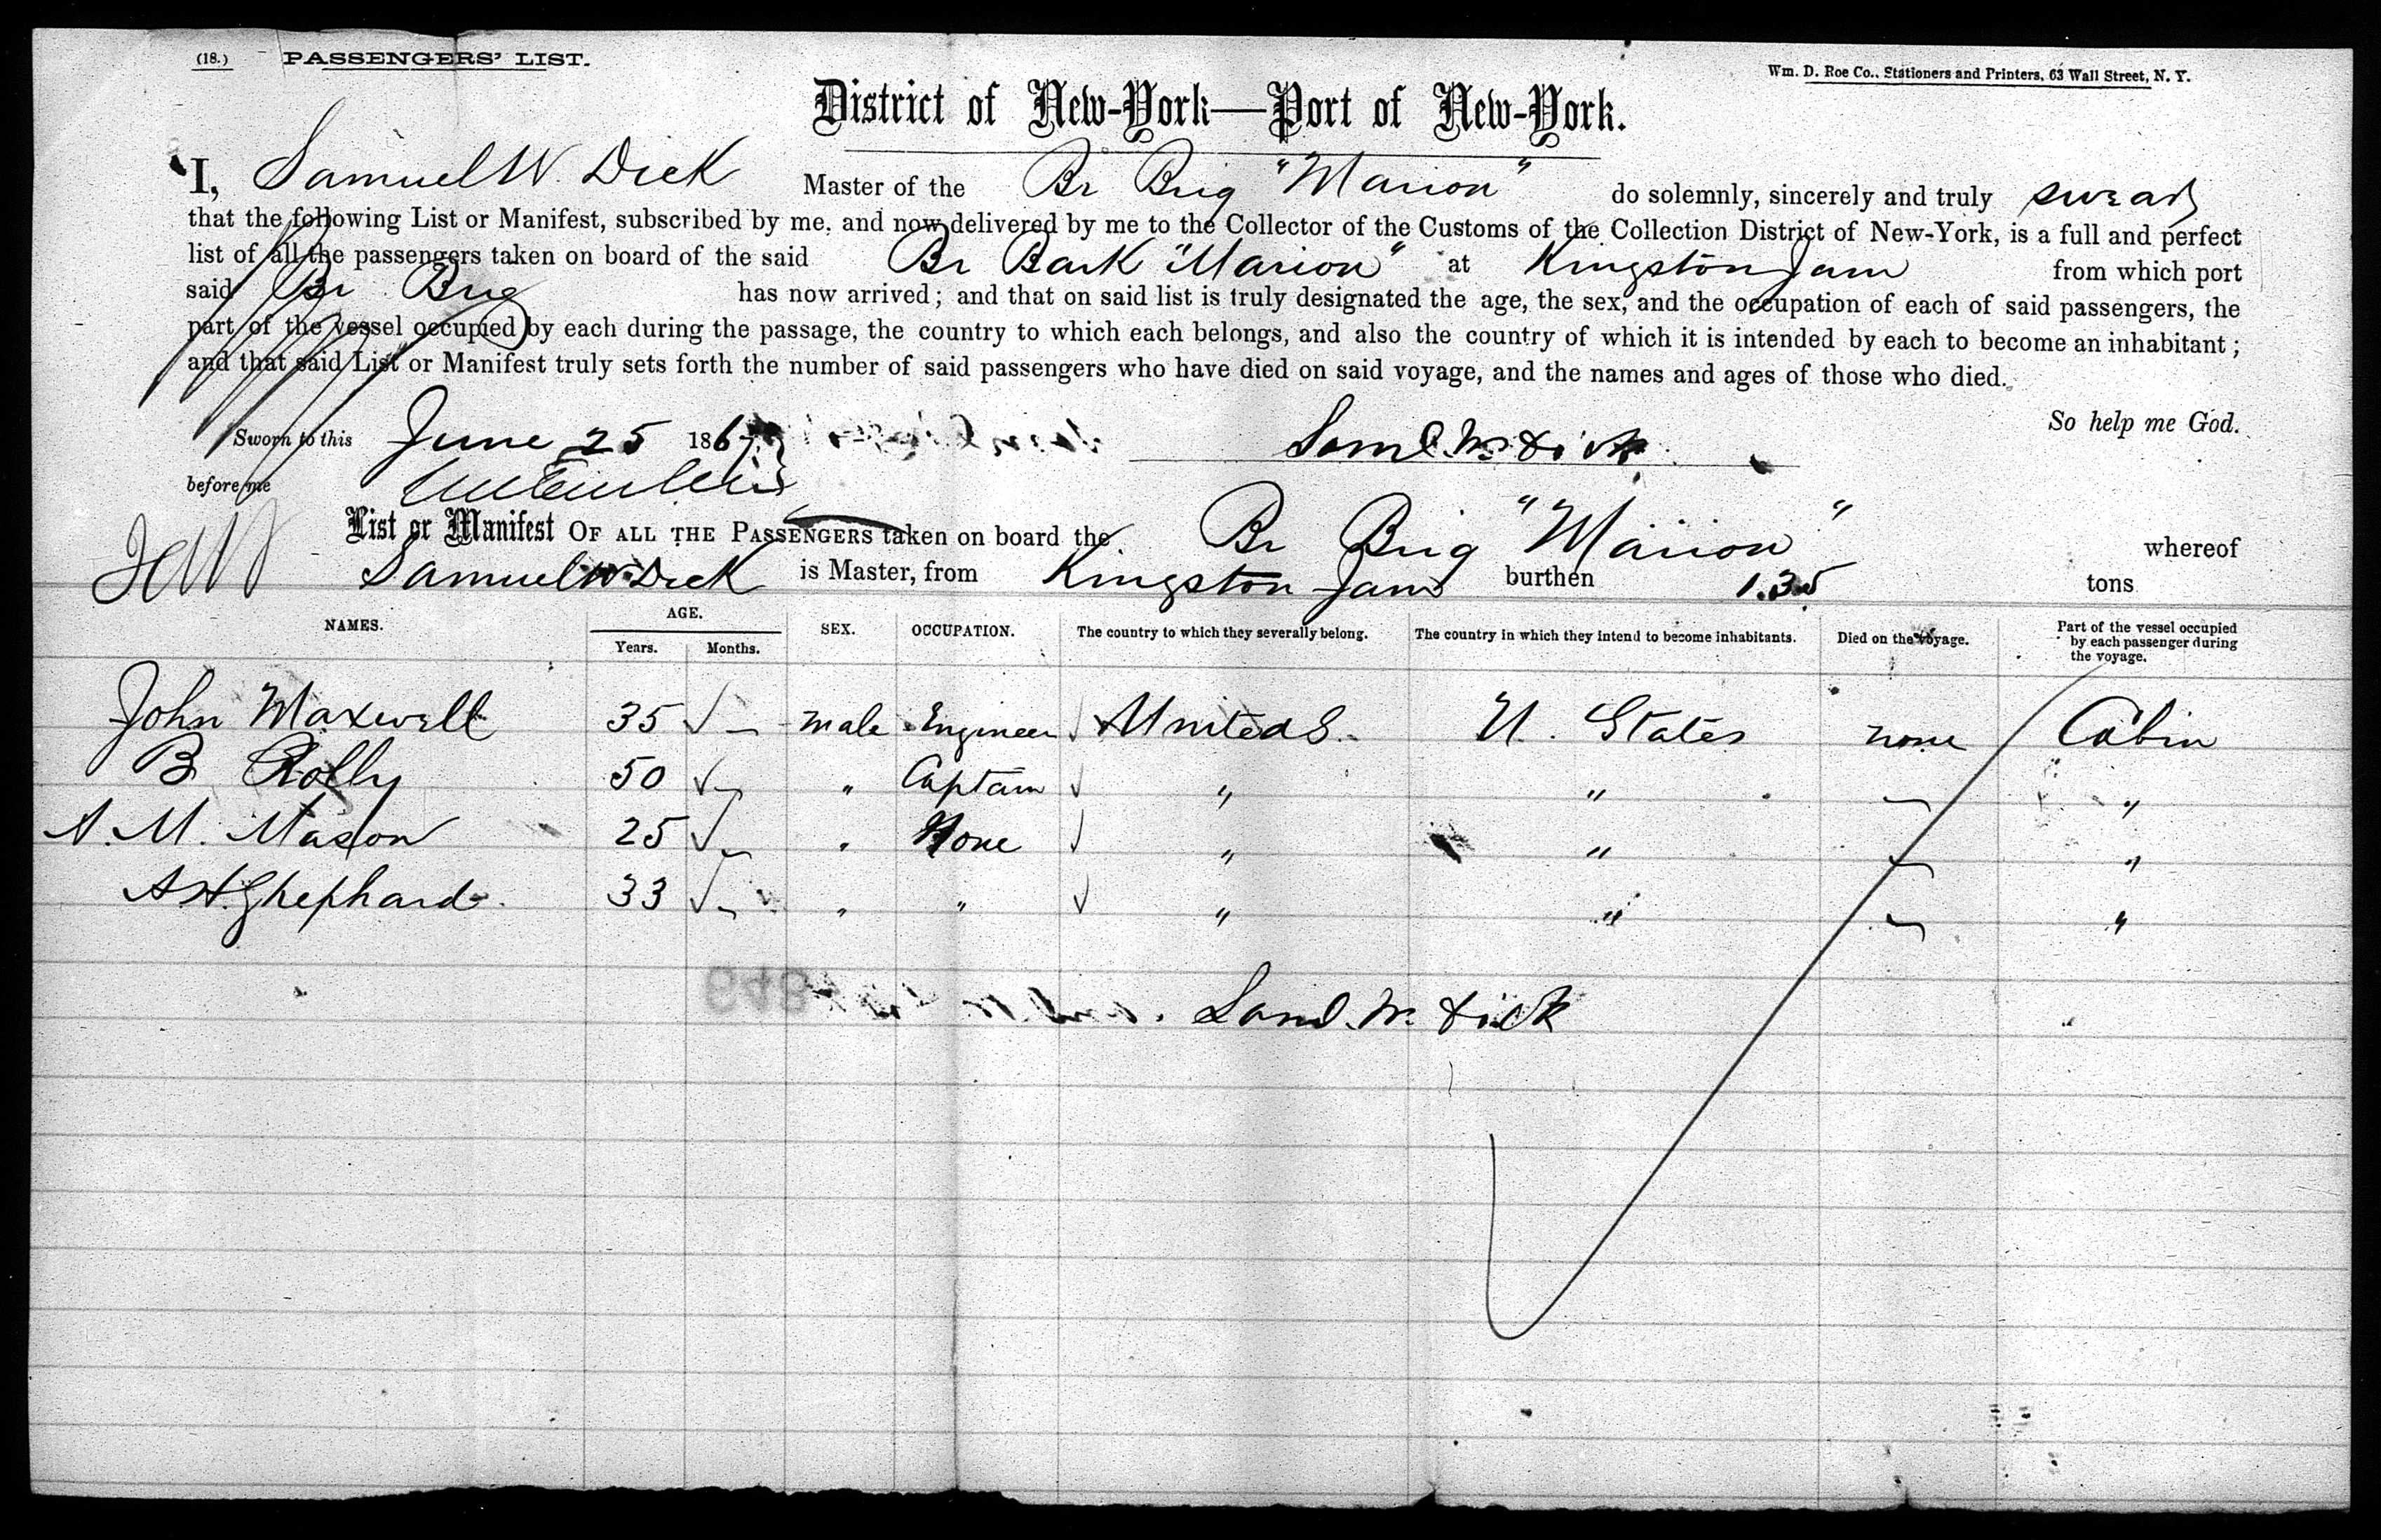 (18.) PASSENGERS' LIST.
Wm. D. Roe Co., Stationers and Printers, 63 Wall Street, N. Y.
District of New-York—Port of New-York.
I, Samuel W. Dick Master of the Br Brig "Marion" do solemnly, sincerely and truly swear
that the following List or Manifest, subscribed by me, and now delivered by me to the Collector of the Customs of the Collection District of New-York, is a full and perfect
list of all the passengers taken on board of the said Br Bark "Marion" at Kingston Jam from which port
said Br Brig has now arrived; and that on said list is truly designated the age, the sex, and the occupation of each of said passengers, the
part of the vessel occupied by each during the passage, the country to which each belongs, and also the country of which it is intended by each to become an inhabitant;
and that said List or Manifest truly sets forth the number of said passengers who have died on said voyage, and the names and ages of those who died.
So help me God.
Sworn to this June 25 1867 Saml. W. Dick
before me
List or Manifest OF ALL THE PASSENGERS taken on board the Br Brig "Marion" whereof
Samuel W. Dick is Master, from Kingston Jam burthen 135 tons
NAMES. AGE. Years. Months. SEX. OCCUPATION. The country to which they severally belong. The country in which they intend to become inhabitants. Died on the voyage. Part of the vessel occupied by each passenger during the voyage.
John Maxwell 35 – male Engineer United S. U. States none Cabin
B Rolly 50 – " Captain " " – "
A. M. Mason 25 – " None " " – "
A H. Shephard 33 – " " " " – "
Saml. W. Dick